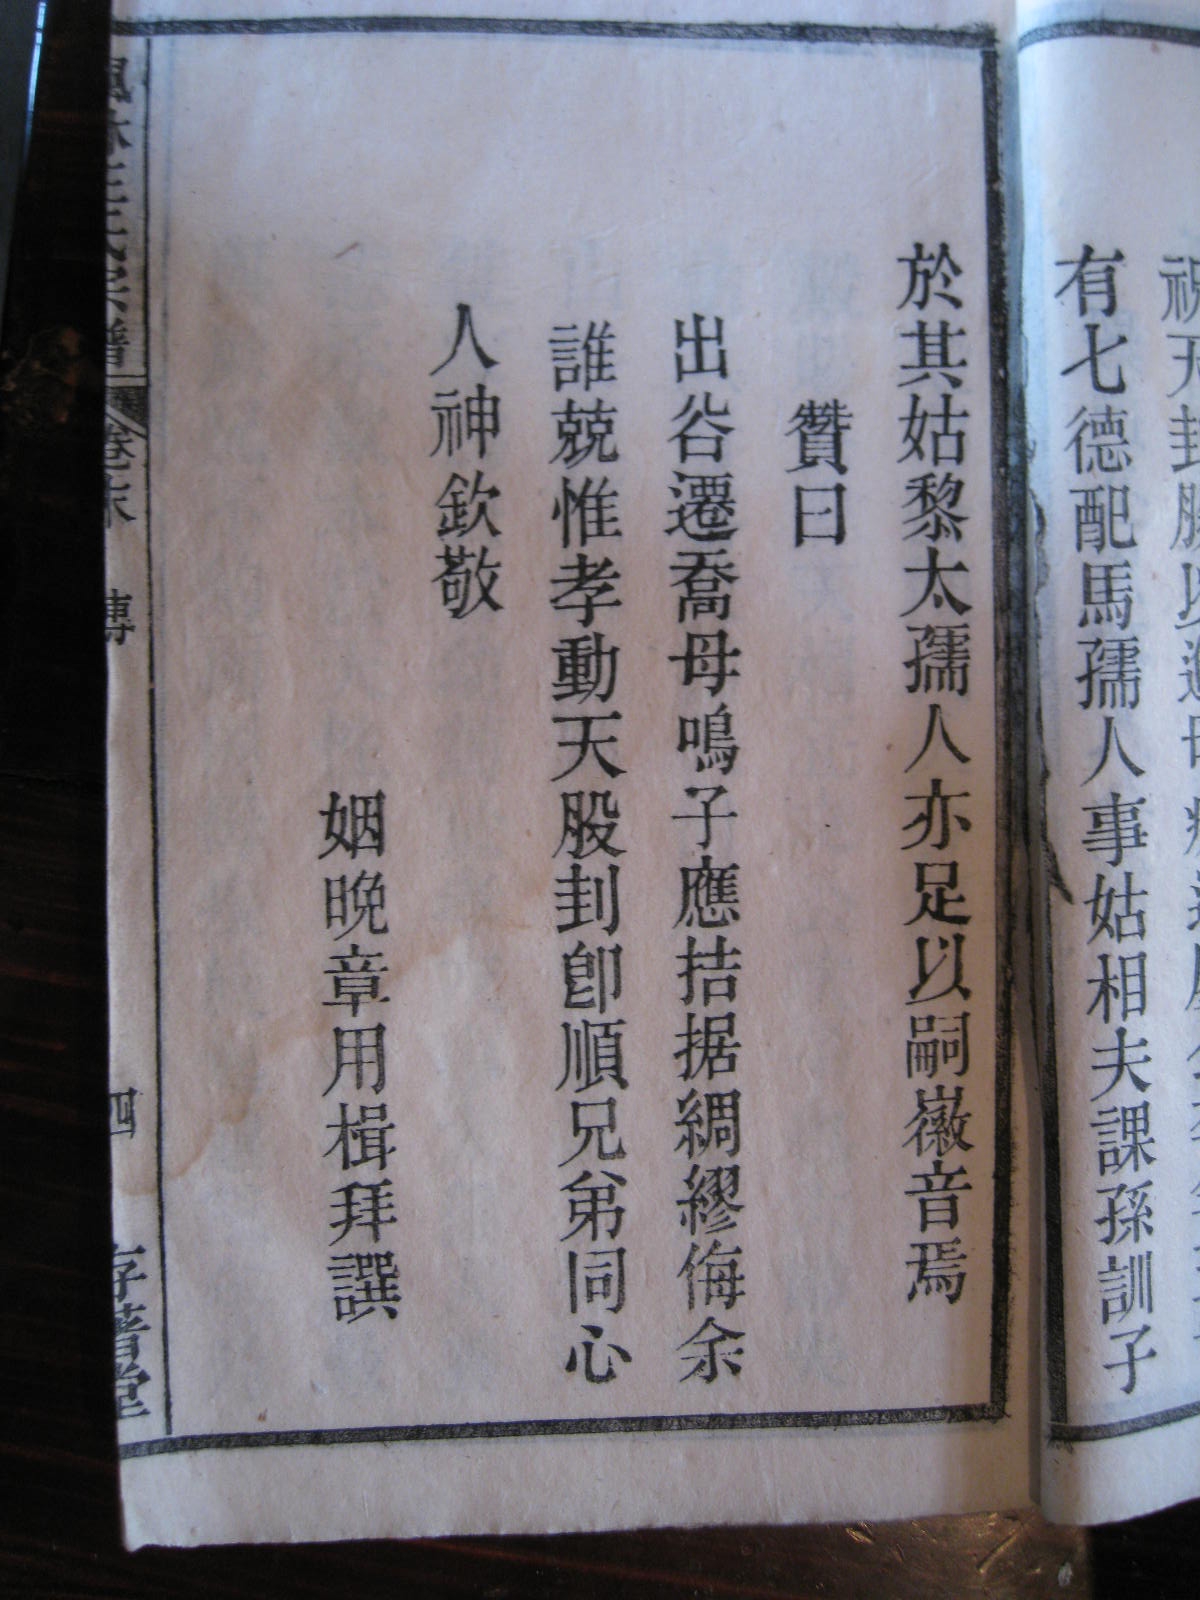 有七德配馬孺人事姑相夫課孫訓子
於其姑黎太孺人亦足以嗣徽音焉
贊曰
出谷遷喬母鳴子應拮据綢繆侮余
誰兢惟孝動天股刲卽順兄弟同心
人神欽敬
姻晚章用楫拜譔
王氏宗譜
卷末
傳
四
存著堂